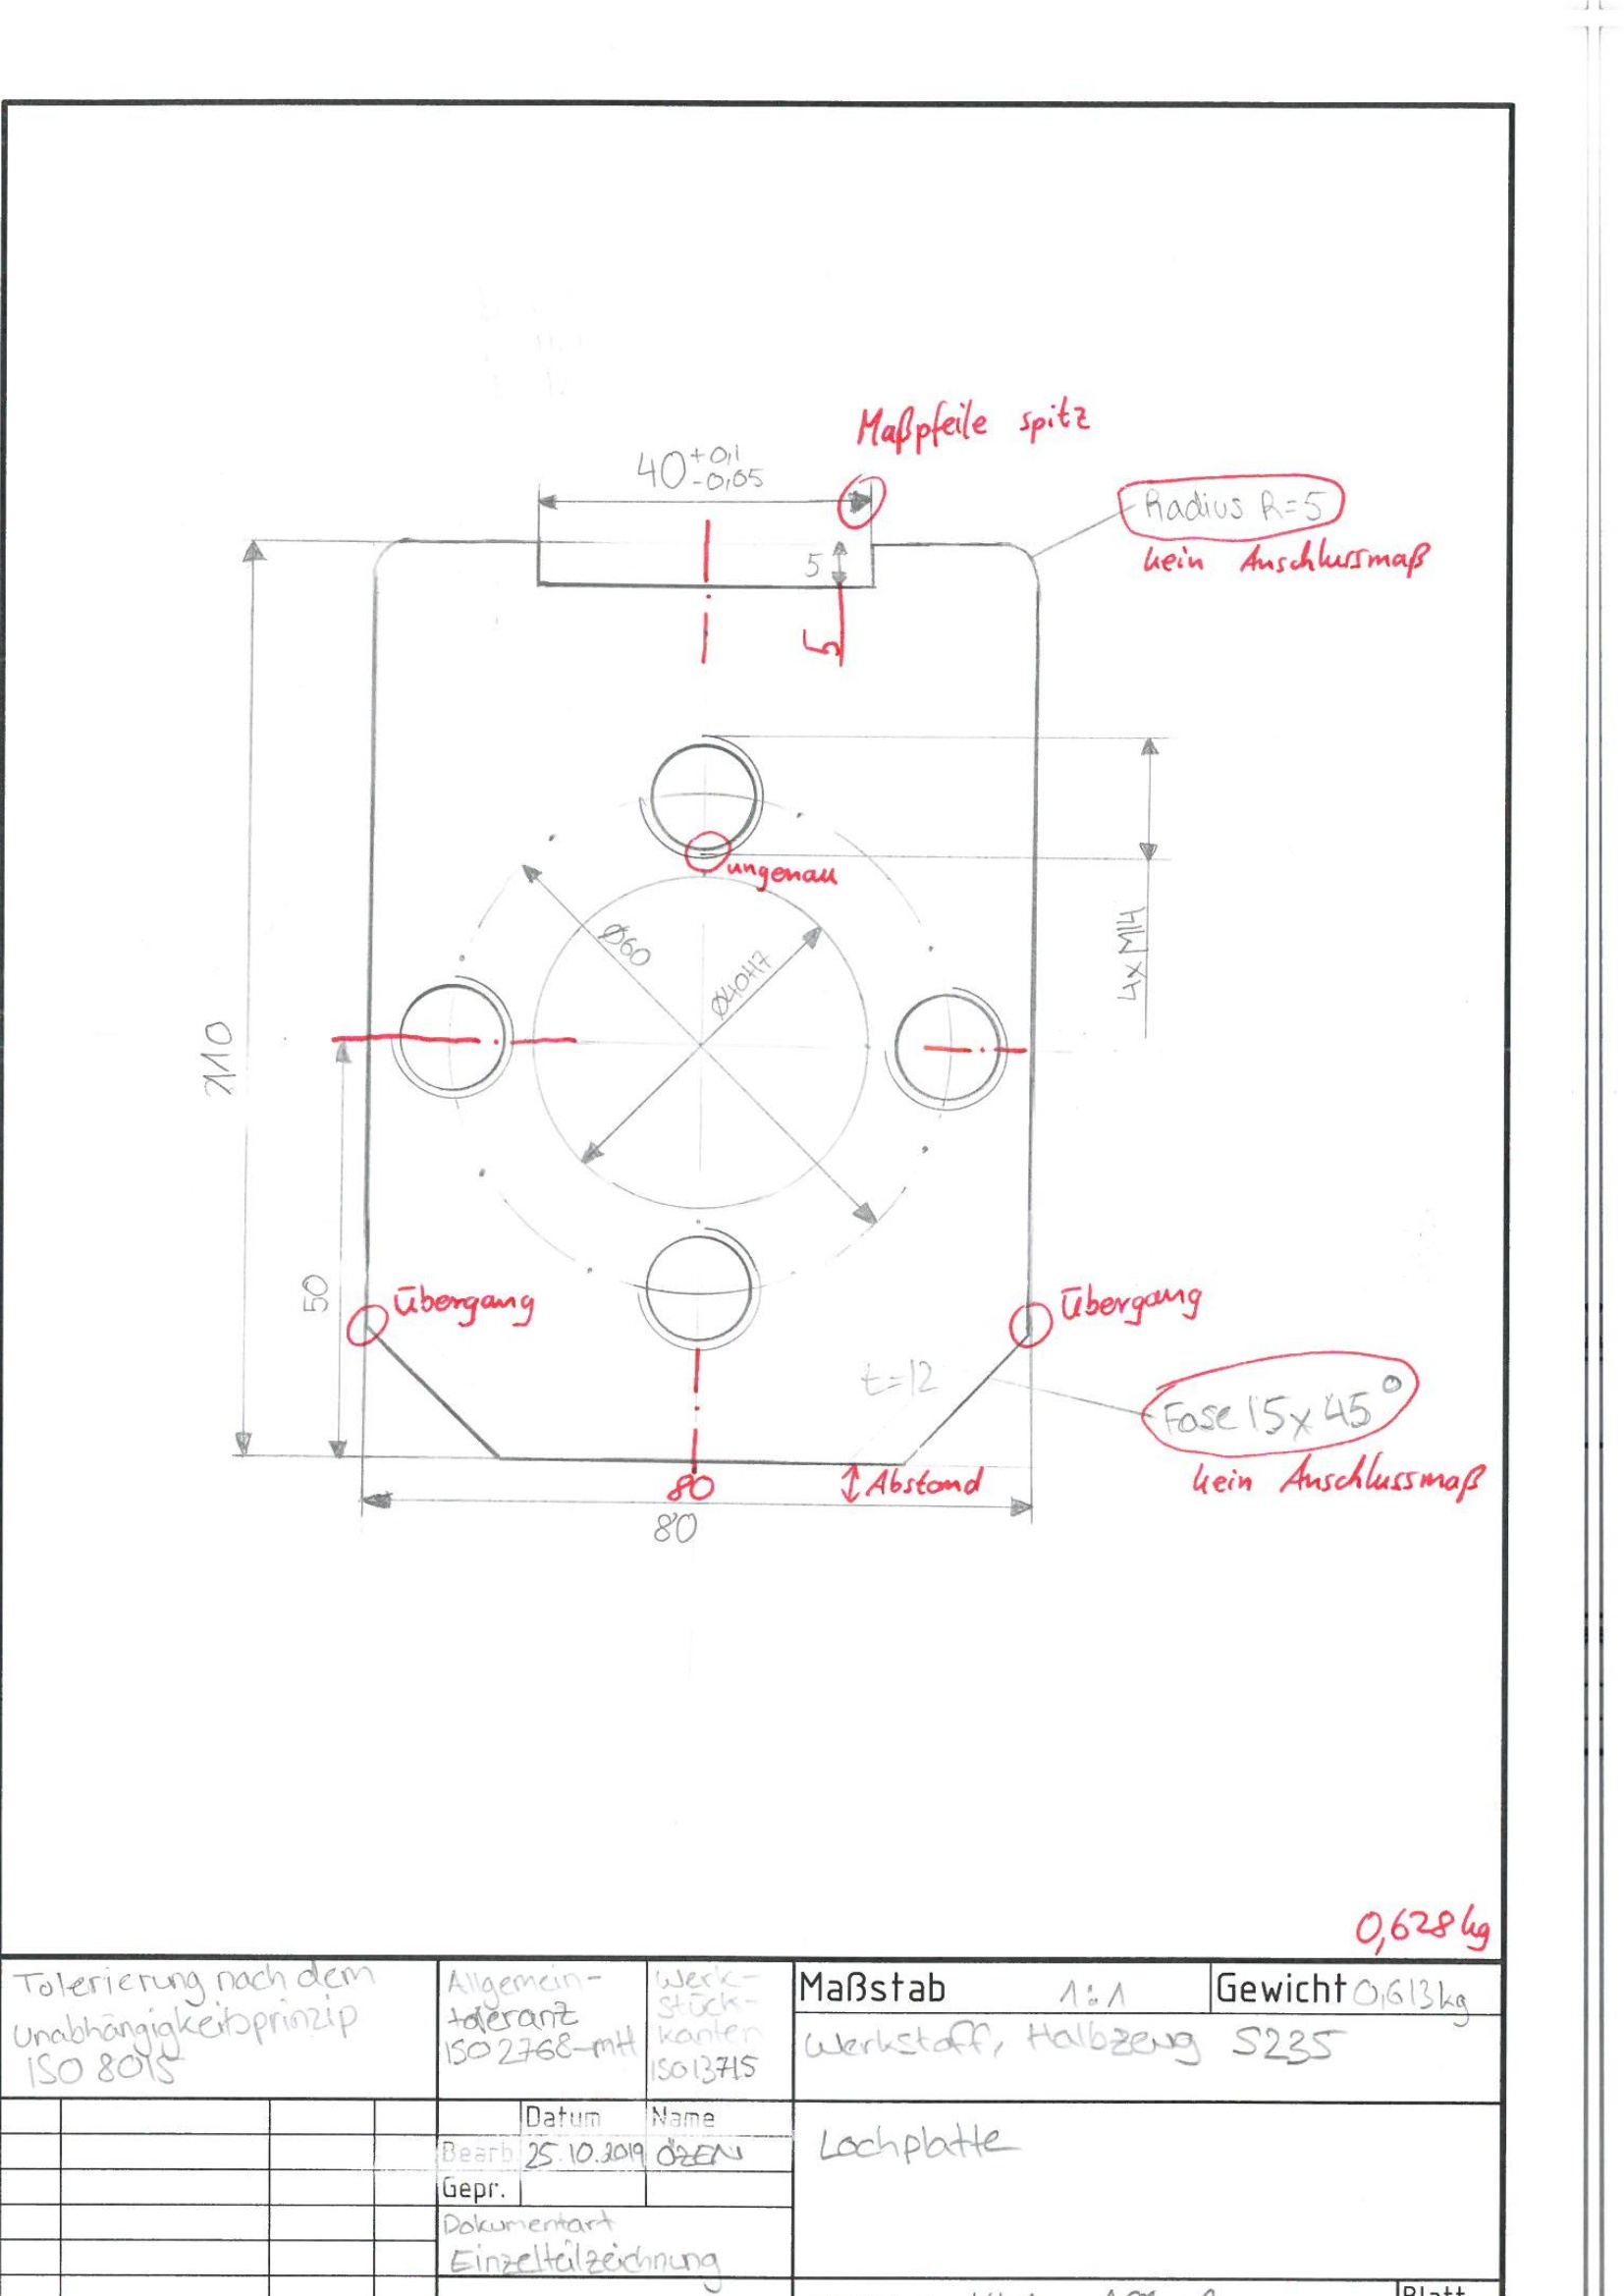 Maßpfeile spitz
40 +0,1
-0,05
Radius R=5
kein Anschlussmaß
5
5
ungenau
Ø60
Ø40H7
4xM14
110
50
Übergang
Übergang
t=12
Fase 15x45°
kein Anschlussmaß
80
Abstand
80
0,628kg
Tolerierung nach dem
Unabhängigkeitsprinzip
ISO 8015
Allgemein-
toleranz
ISO 2768-mH
Werk-
stück-
kanten
ISO 13715
Maßstab 1:1
Gewicht 0,613kg
Werkstoff, Halbzeug S235
Datum Name
Bearb 25.10.2019 ÖZEN
Gepr.
Lochplatte
Dokumentart
Einzelteilzeichnung
Blatt